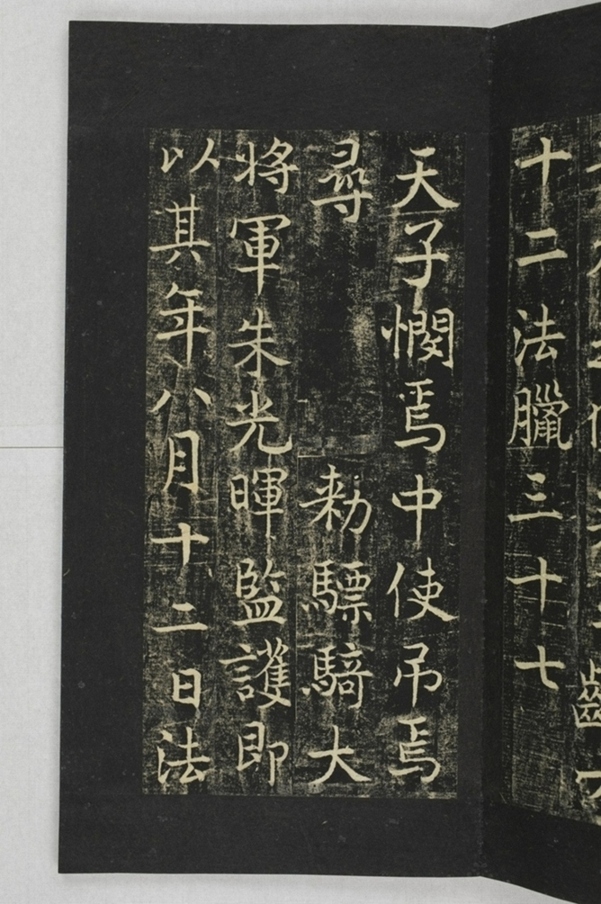 十二法臘三十七
天子憫焉中使吊焉
尋　勅驃騎大
將軍朱光暉監護即
以其年八月十二日法